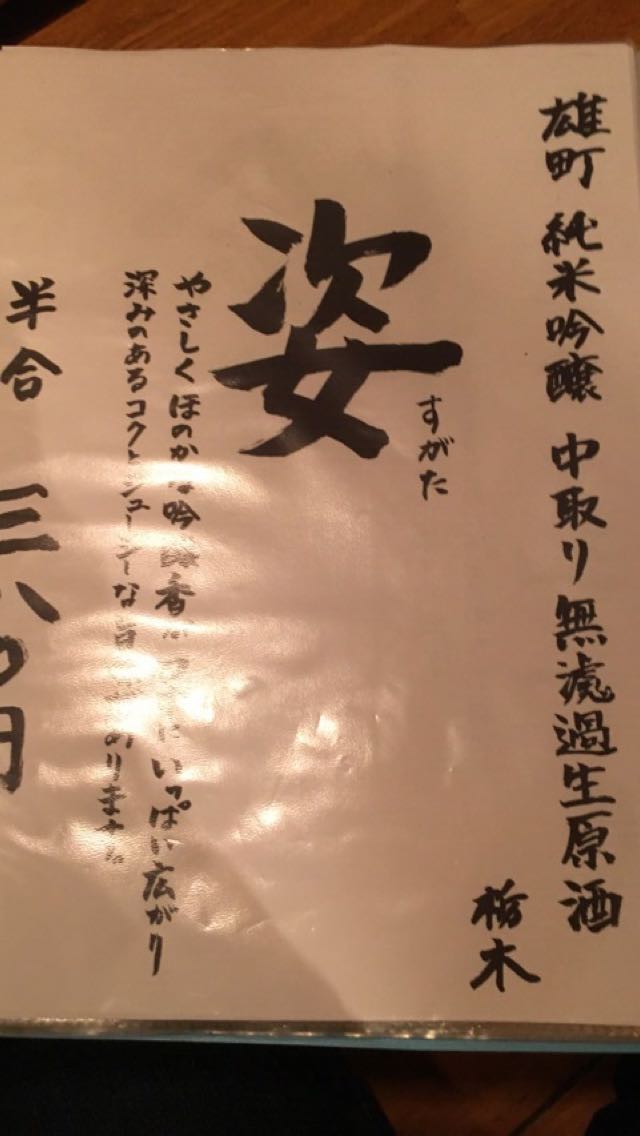 雄町 純米吟醸 中取り無濾過生原酒
栃木
姿
すがた
やさしくほのかな吟醸香が いっぱい広がり
深みのあるコクとジューシーな旨 あります
半合 三八〇円